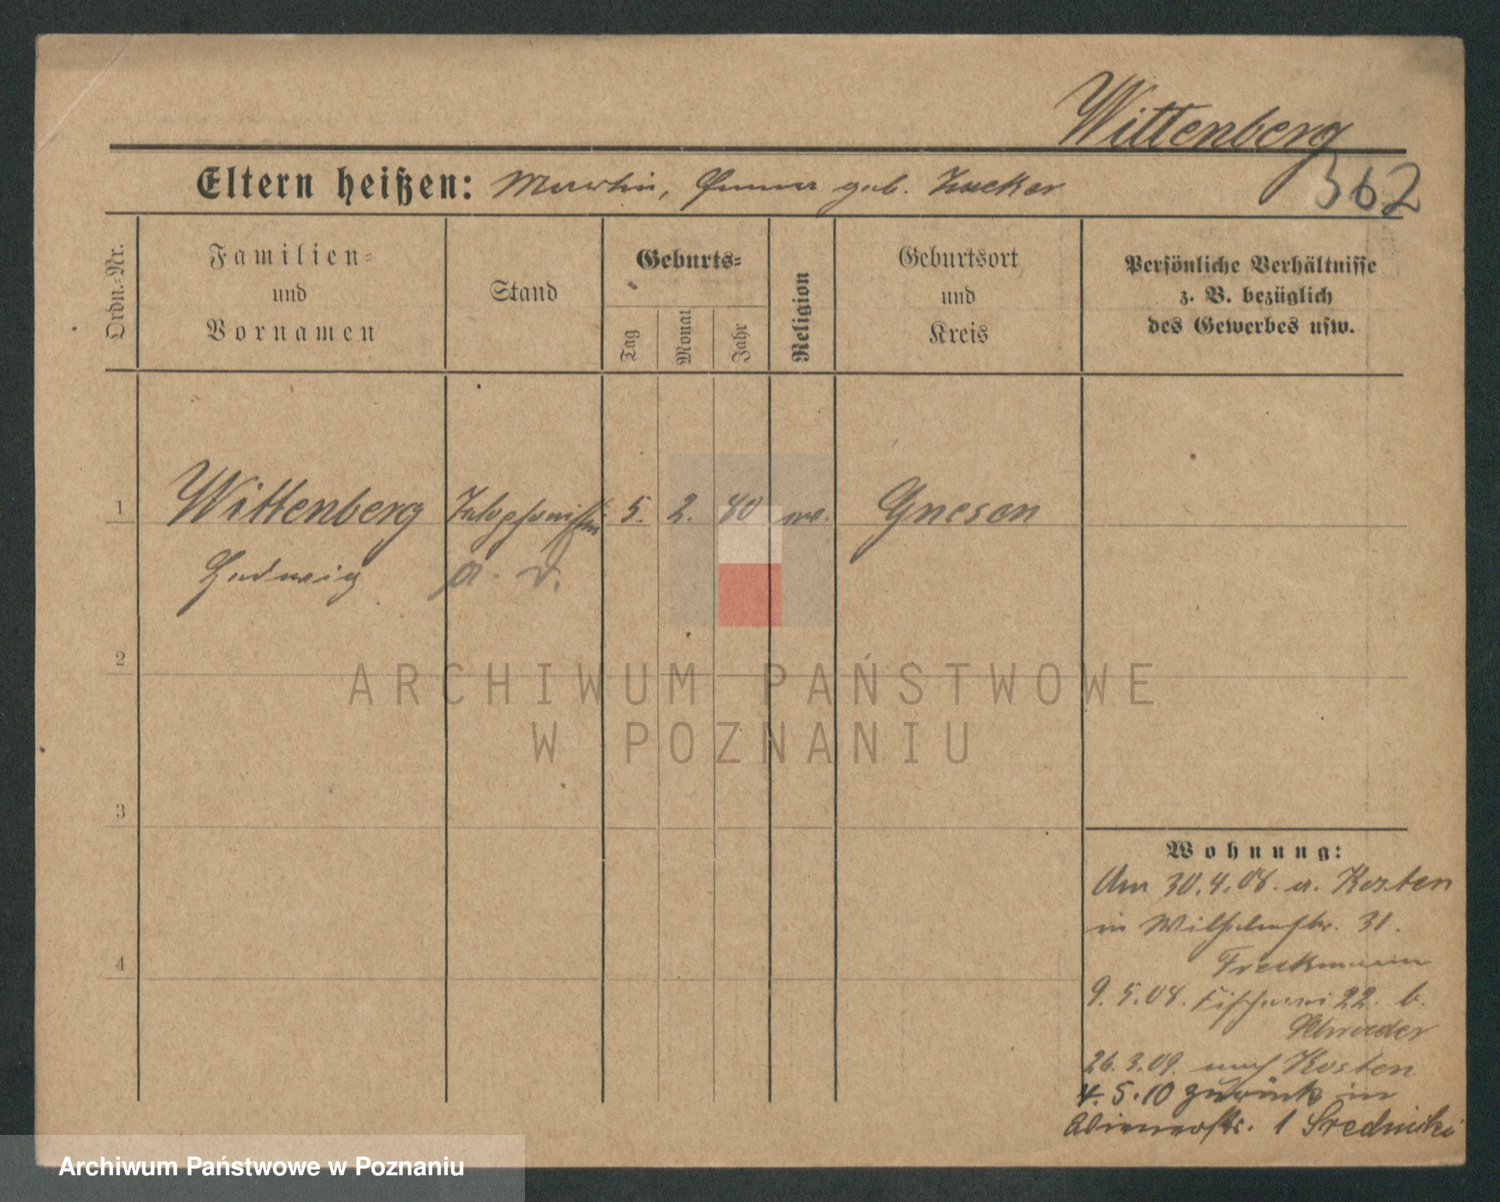 Wittenberg
362
Eltern heißen: Martin, Emma geb. Zucker
Ordn.-Nr.
Familien=
und
Vornamen
Stand
Geburts=
Tag
Monat
Jahr
Religion
Geburtsort
und
Kreis
Persönliche Verhältnisse
z. B. bezüglich
des Gewerbes usw.
1
Wittenberg Telephonistin 5. 2. 80 ev. Gnesen
Hedwig a. D.
2
3
4
ARCHIWUM PAŃSTWOWE
W POZNANIU
Wohnung:
Am 30.4.08. a. Kosten
in Wilhelmstr. 31.
9.5.08. Fischerei 22. b.
Schroeder
26.3.09. nach Kosten
4.5.10 zurück in
1 Srednicki
Archiwum Państwowe w Poznaniu